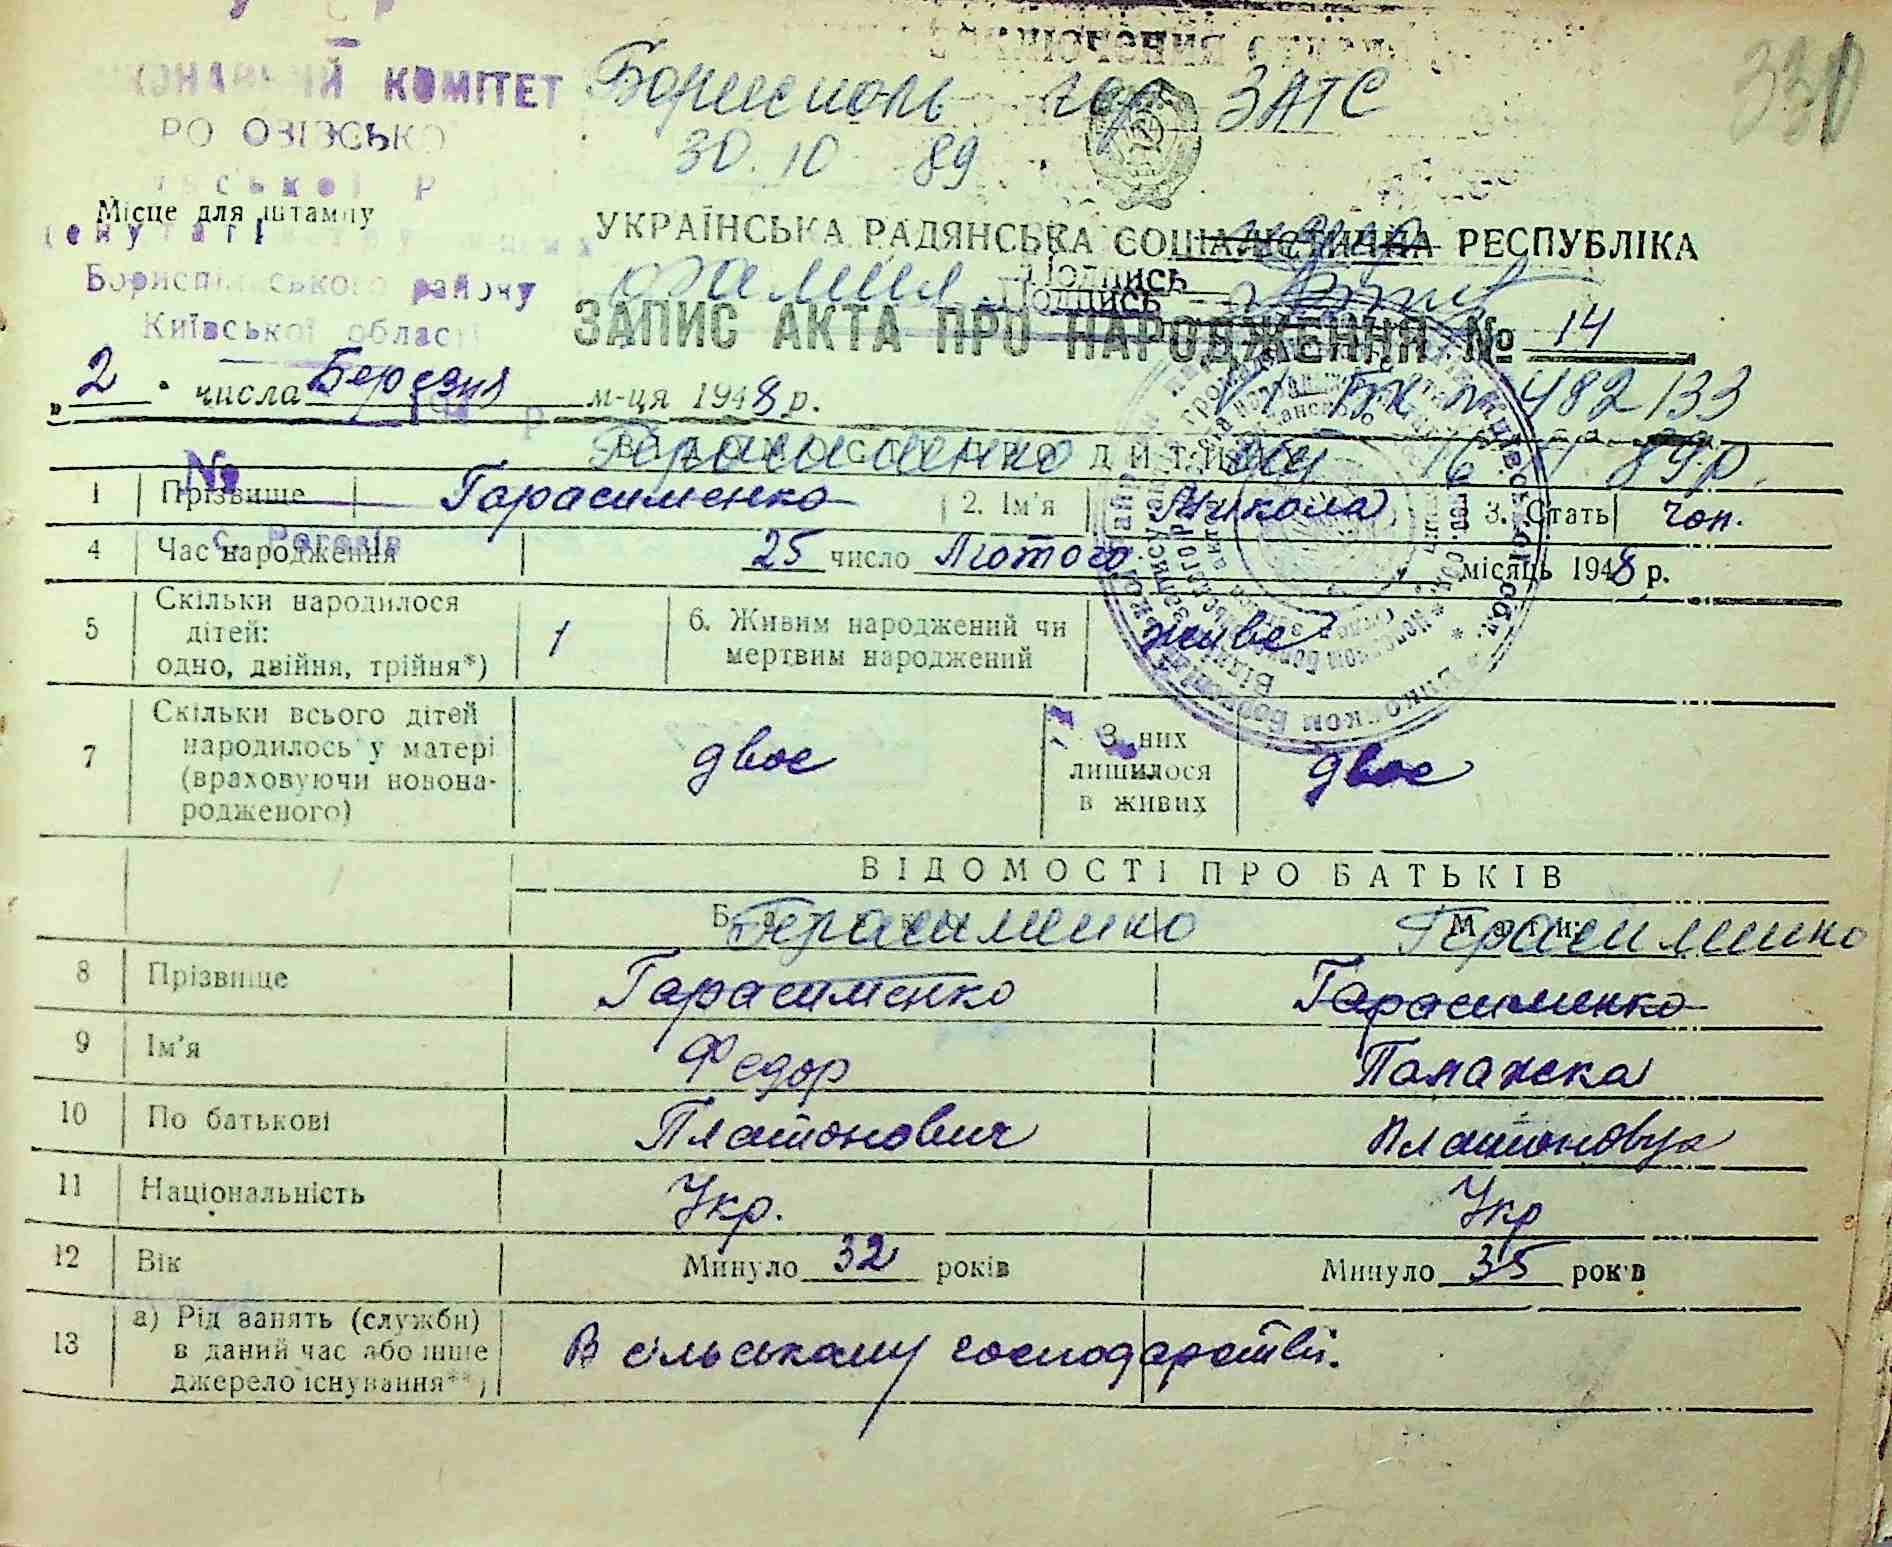 330
КОНАВЧИЙ КОМІТЕТ
Бориспель гор ЗАГС
30.10 89
Місце для штампу
УКРАЇНСЬКА РАДЯНСЬКА СОЦІАЛІСТИЧНА РЕСПУБЛІКА
Бориспільського району
Київської області
Подпись
Подпись
ЗАПИС АКТА ПРО НАРОДЖЕННЯ № 14
„ 2 " числа Березня м-ця 1948 р.
№ 482133
Герасименко
16 89р.
№
1 Прізвище Гарасименко 2. Ім'я Микола 3. Стать чол.
с. Рогозів
4 Час народження 25 число Лютого місяць 1948 р.
5 Скільки народилося дітей: одно, двійня, трійня*) 1 6. Живим народжений чи мертвим народжений живе
7 Скільки всього дітей народилось у матері (враховуючи новонародженого) двоє З них лишилося в живих двоє
ВІДОМОСТІ ПРО БАТЬКІВ
Батько Мати
Герасименко Герасименко
8 Прізвище Гарасименко Гарасименко
9 Ім'я Федор Палажска
10 По батькові Платонович Платоновна
11 Національність Укр. Укр
12 Вік Минуло 32 років Минуло 35 років
13 а) Рід занять (служби) в даний час або інше джерело існування**) В сільському господарстві.